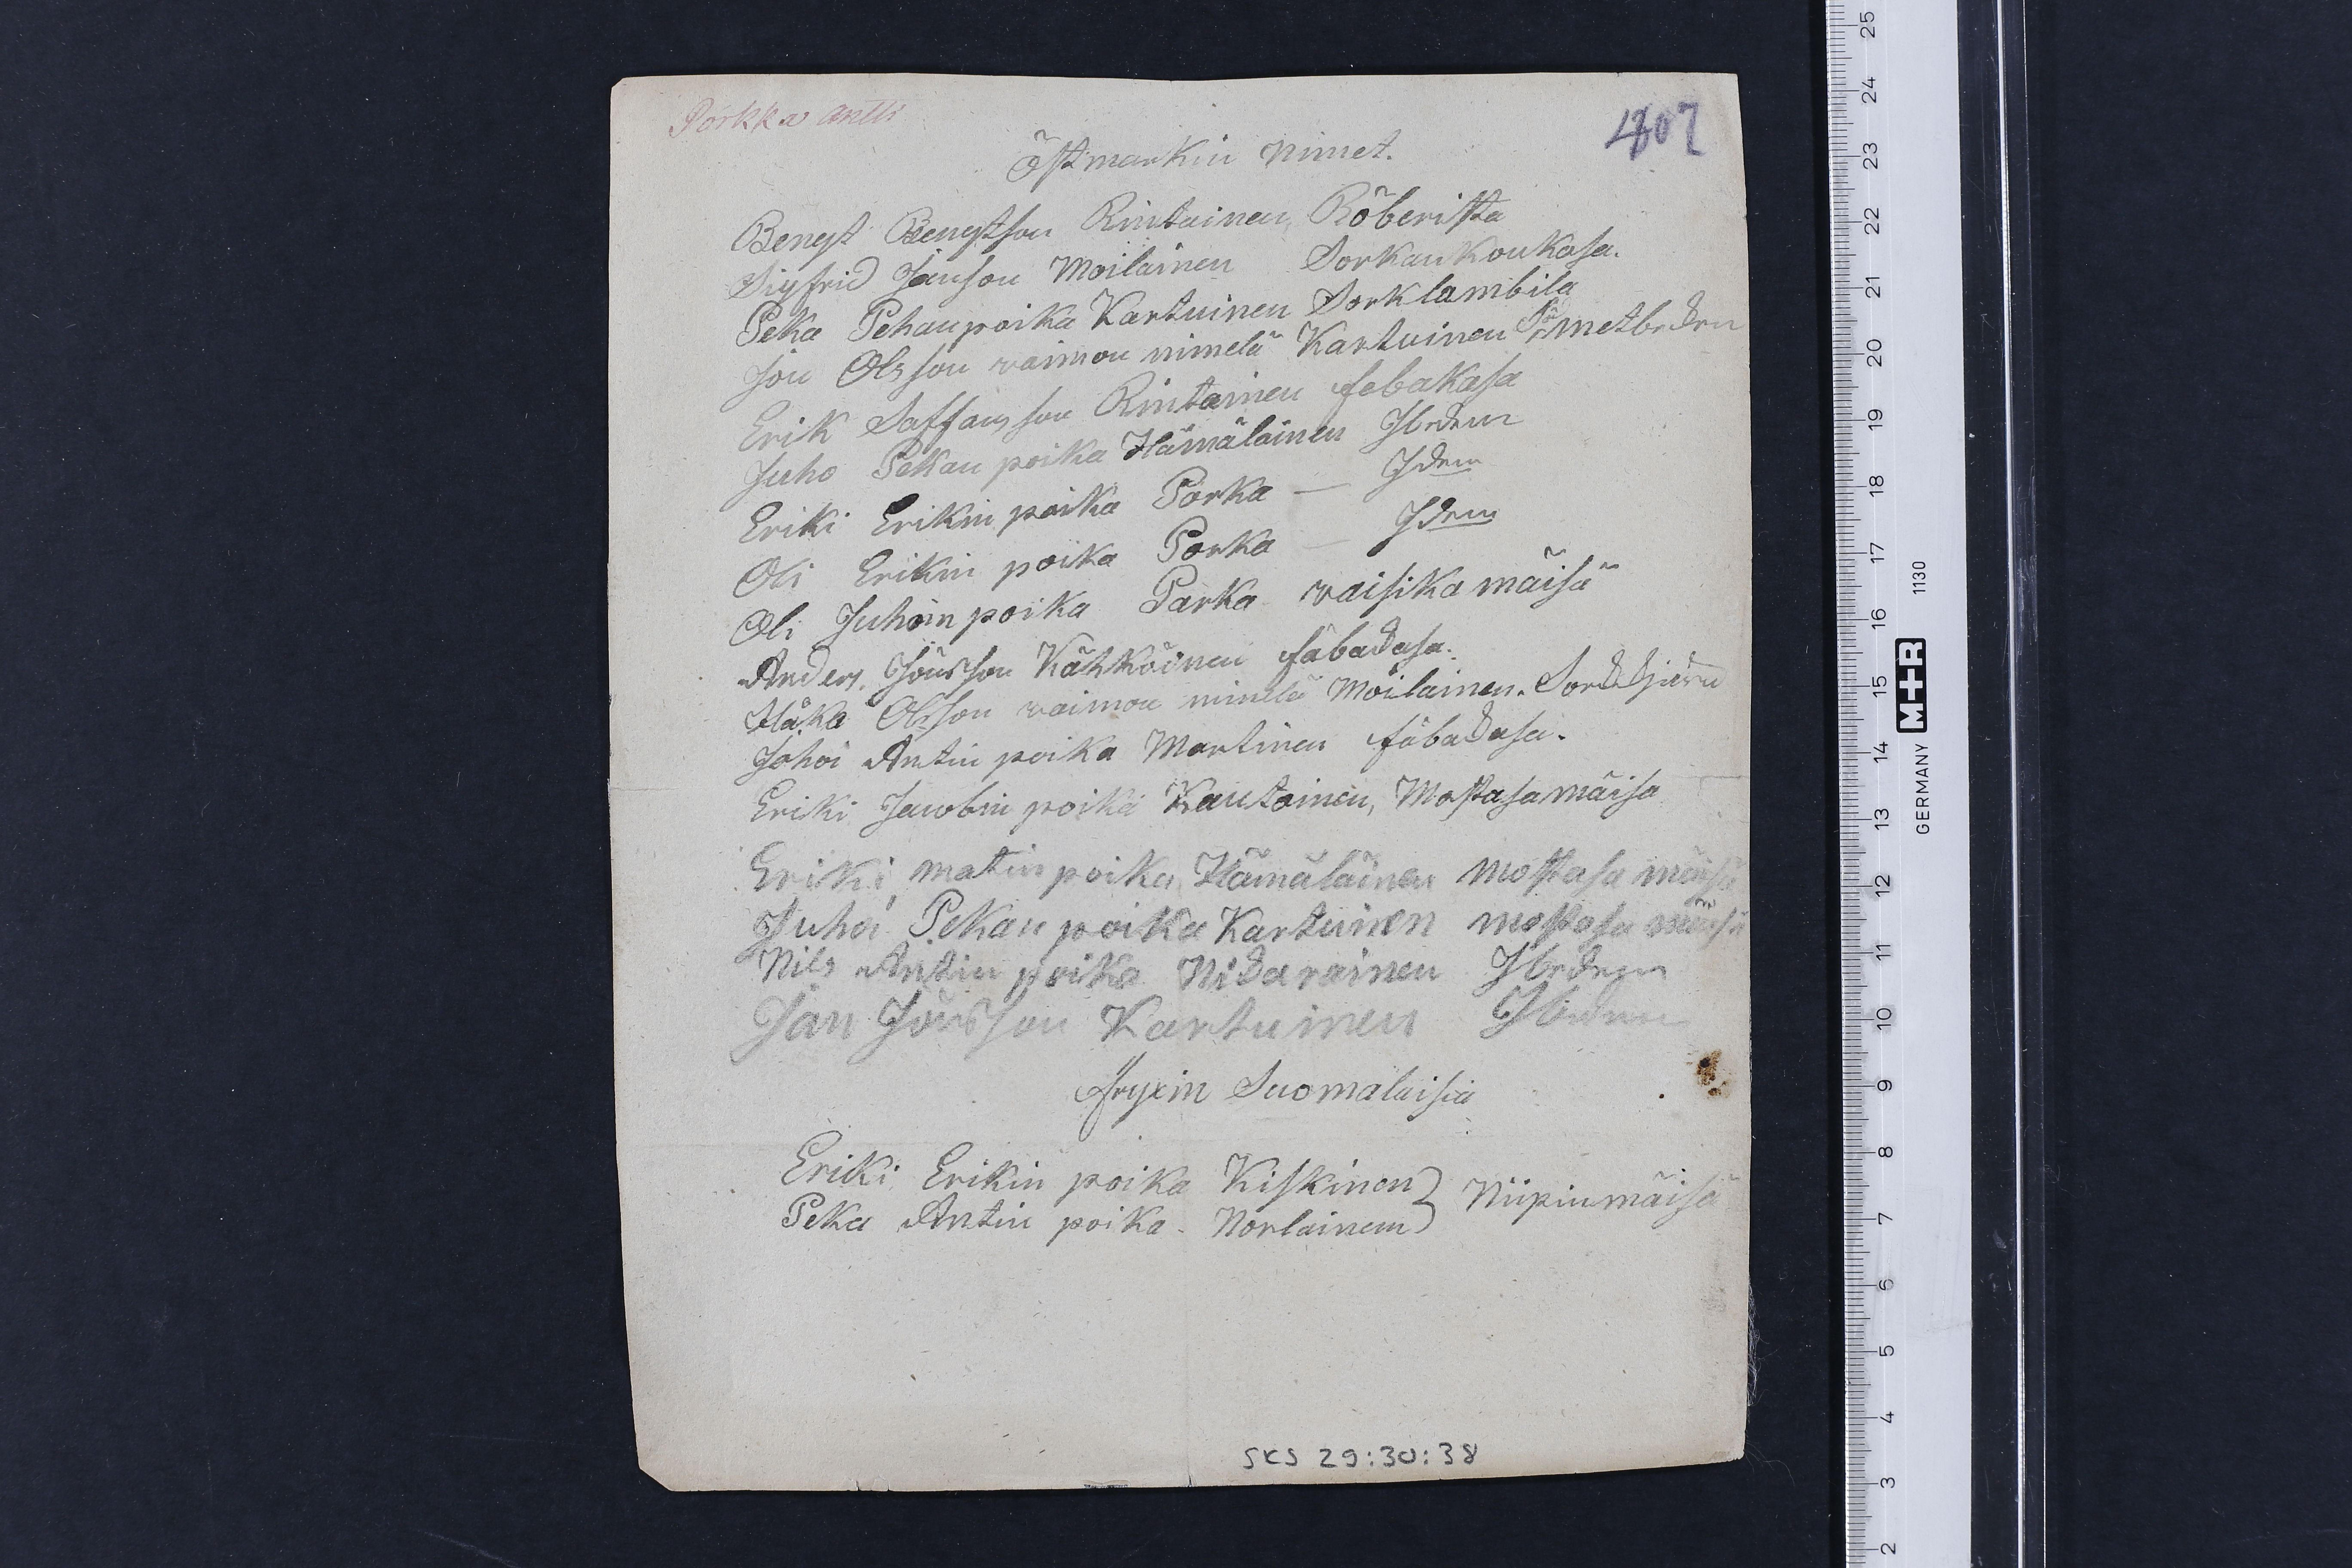 Porkka Antti
407
Östmarkin nimet.
Bengt Bengtson Rintainen, Röberista
Sigfrid Jansson Moilainen Sorkankoukasa.
Peka Pehanpoika Kartuinen Sorklambila
Jön Olsson vaimon nimelä Kartuinen
Erik Saffansson Rintainen febakasa
Juho Pekan poika Hämäläinen Ibidem
Eriki Erikin poika Porka — Idem
Oli Erikin poika Porka — Idem
Oli Juhoin poika Parka vaisika mäisä
Anders Jönsson Kähköinen fäbadasa.
Håka Olsson vaimon nimelä Moilainen.
Johoi Antin poika Martinen fäbadasa.
Eriki Jacobin poika Kautoinen, Mostasamäisa
Eriki matin poika Hämäläinen mostasa mäisä
Juhoi Pekan poika Kartuinen mostasa mäisä
Nils Antin poika Nidarainen Ibidem
Jan Jönsson Kartuinen Ibidem
fryxin Suomalaisia
Eriki Erikin poika Kiskinen
Peka Antin poika Norlainem } Niipinmäisä
SKS 29:30:38
25 24 23 22 21 20 19 18 17 16 15 14 13 12 11 10 9 8 7 6 5 4 3 2
GERMANY M+R 1130